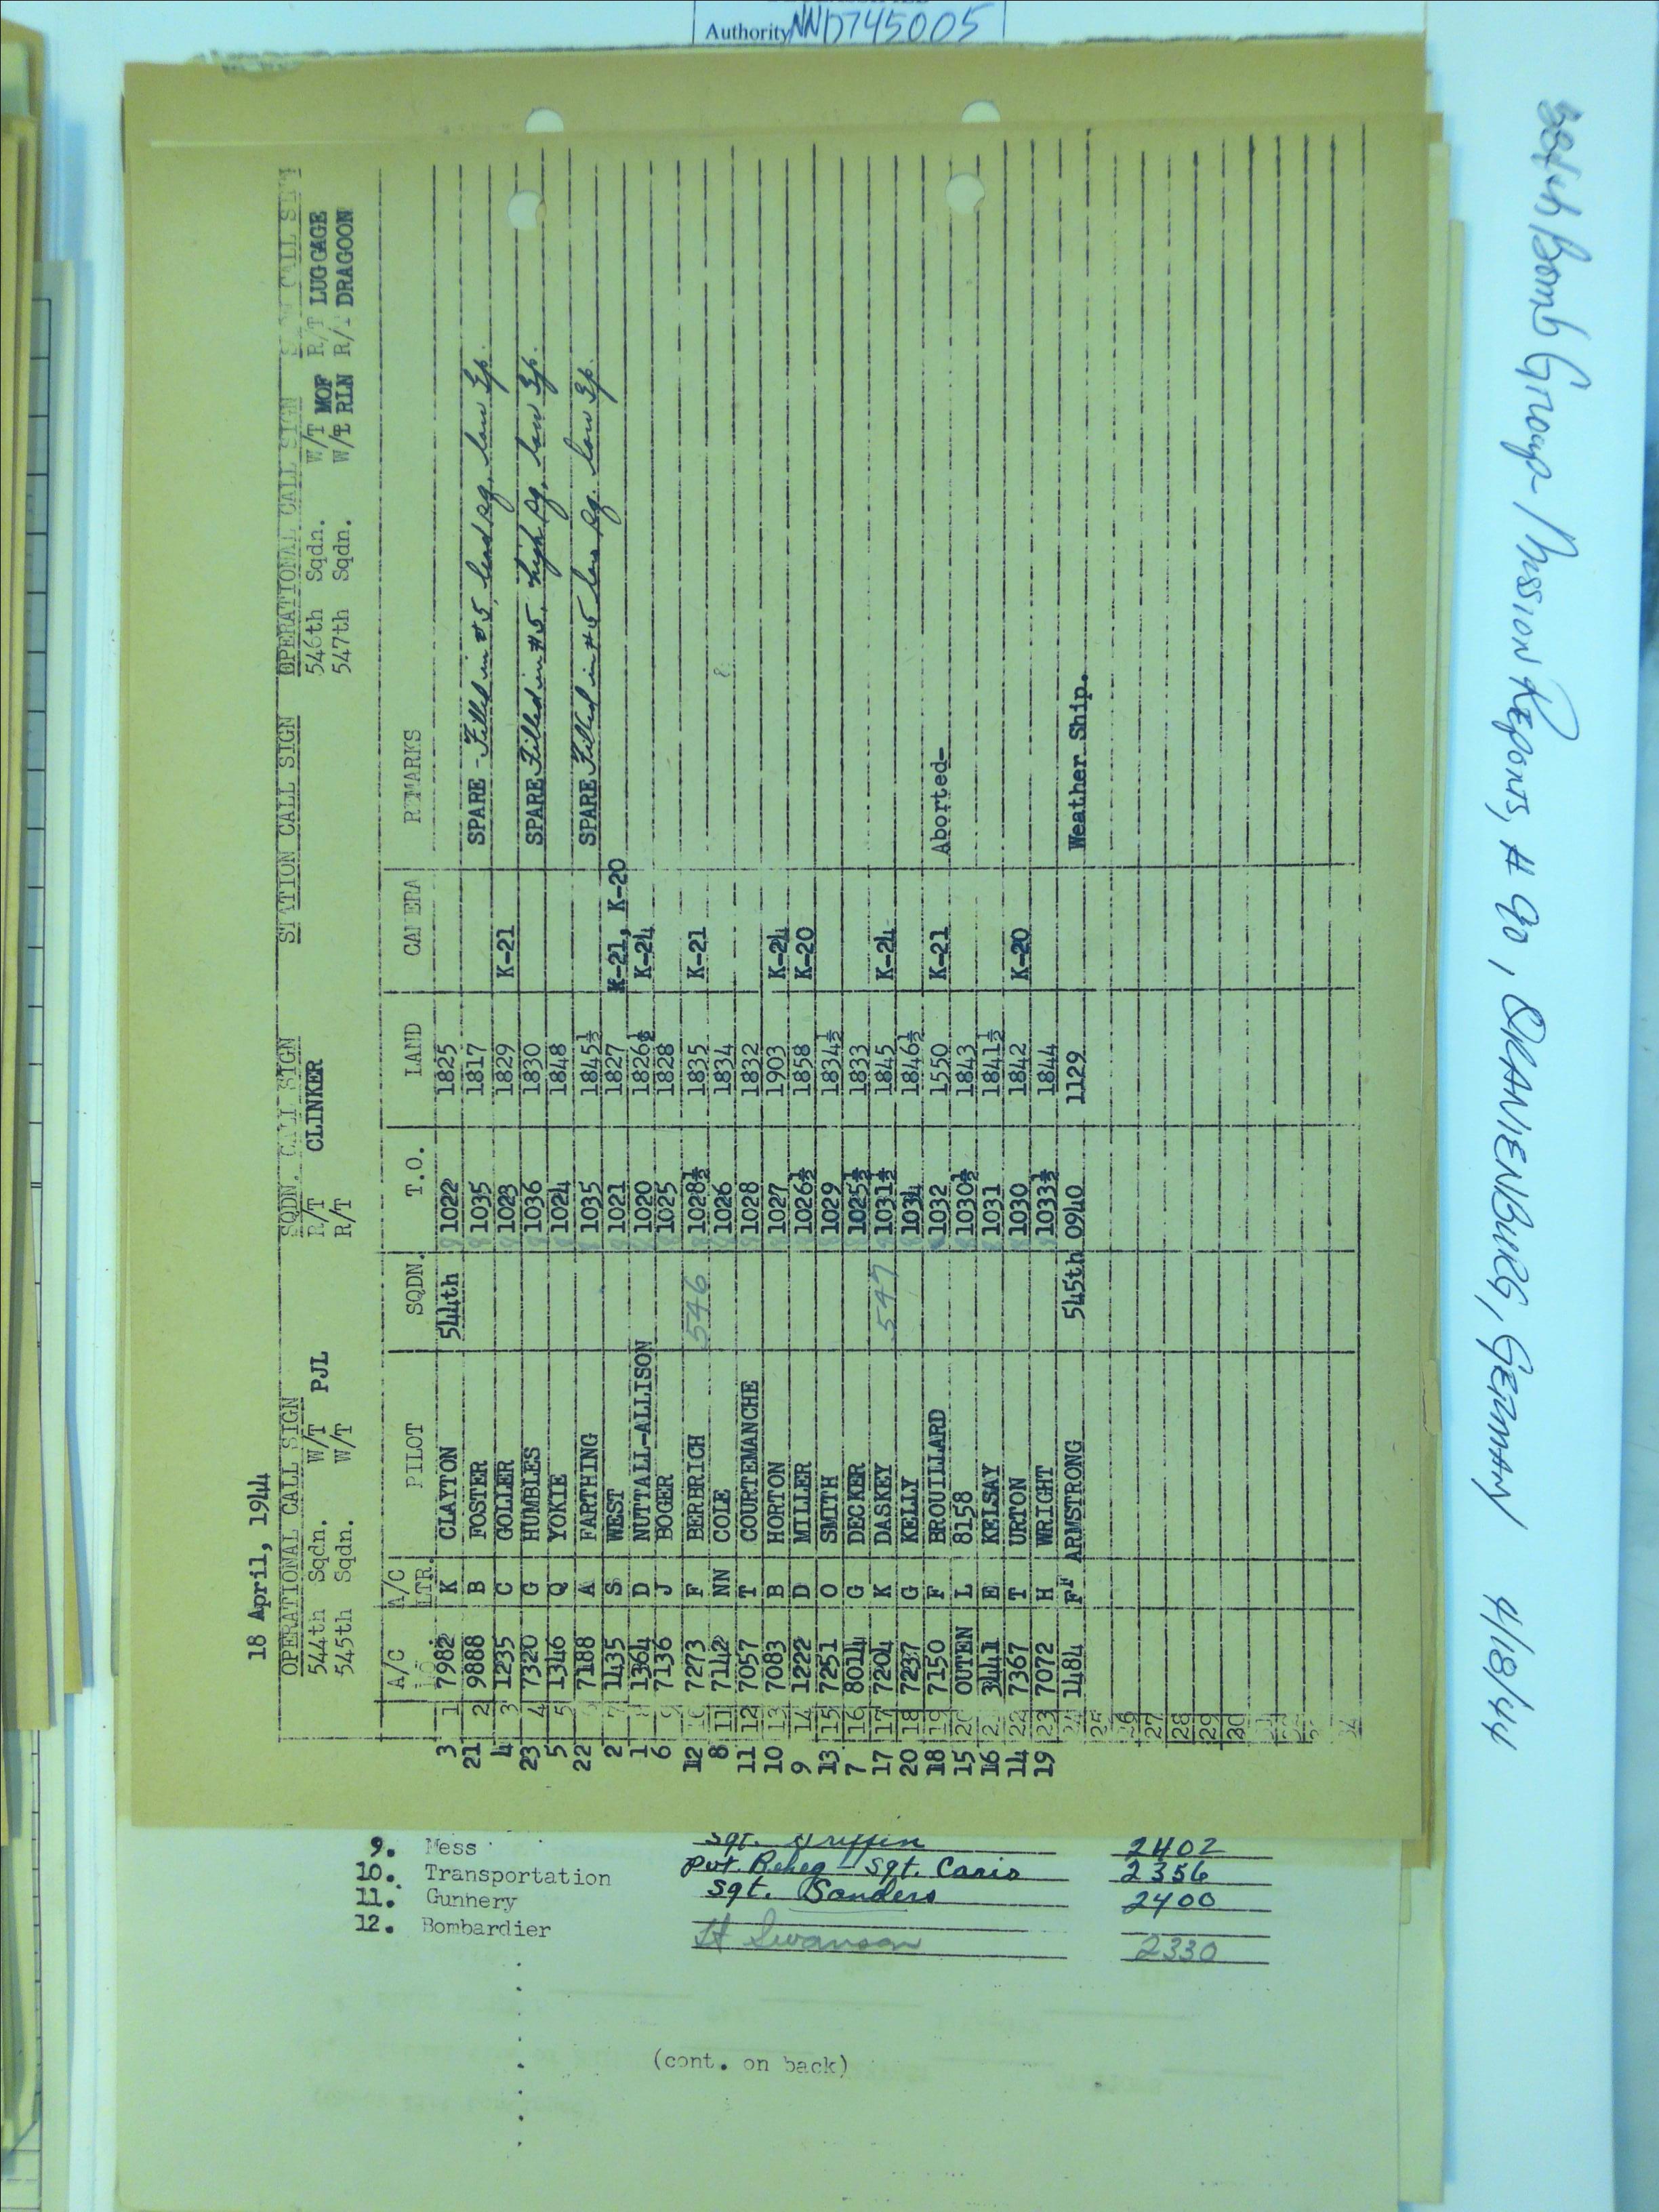 Authority NND745005
18 April, 1944
OPERATIONAL CALL SIGN SQDN. CALL SIGN STATION CALL SIGN OPERATIONAL CALL SIGN CALL SIGN
544th Sqdn. W/T PJL R/T CLINKER 546th Sqdn. W/T MOF R/T LUGGAGE
545th Sqdn. W/T R/T 547th Sqdn. W/T RLN R/T DRAGOON
A/C NO. A/C LTR. PILOT SQDN. T.O. LAND CAMERA REMARKS
3 1 7982 K CLAYTON 544th 1022 1825
21 2 9888 B FOSTER 1035 1817 SPARE - Filled in #5, lead sq. low Gp.
4 3 1235 C GOLLER 1023 1829 K-21
23 4 7320 G HUMBLES 1036 1830 SPARE Filled in #5, high sq, low Gp.
5 5 1346 Q YOKIE 1024 1848
22 7188 A FARTHING 1035 1845½ SPARE Filled in #5 low sq. low Gp
2 7 1435 S WEST 1021 1827 K-21, K-20
1 8 1364 D NUTTALL-ALLISON 1020 1826½ K-24
6 9 7136 J BOGER 1025 1828
12 10 7273 F BERBRICH 546 1028½ 1835 K-21
8 11 7142 NN COLE 1026 1834
11 12 7057 T COURTEMANCHE 1028 1832
10 13 7083 B HORTON 1027 1903 K-24
9 14 1222 D MILLER 1026½ 1858 K-20
13 15 7251 O SMITH 1029 1834½
7 16 8014 G DECKER 1025½ 1833
17 17 7204 K DASKEY 547 1031½ 1845 K-24
20 18 7237 G KELLY 1034 1846½
18 19 7150 F BROUILLARD 1032 1550 K-21 Aborted-
15 20 OUTEN L 8158 1030½ 1843
16 2 3441 E KELSAY 1031 1841½
14 22 7367 T URTON 1030 1842 K-20
19 23 7072 H WRIGHT 1033½ 1844
24 1484 F ARMSTRONG 545th 0940 1129 Weather Ship.
25
26
27
28
29
30
9. Mess Sgt. Griffin 2402
10. Transportation Pvt. Sgt. Caris 2356
11. Gunnery Sgt. Sanders 2400
12. Bombardier Lt Swanson 2330
(cont. on back)
384th Bomb Group - Mission Reports, # 90, ORANIENBURG, GERMANY 4/18/44